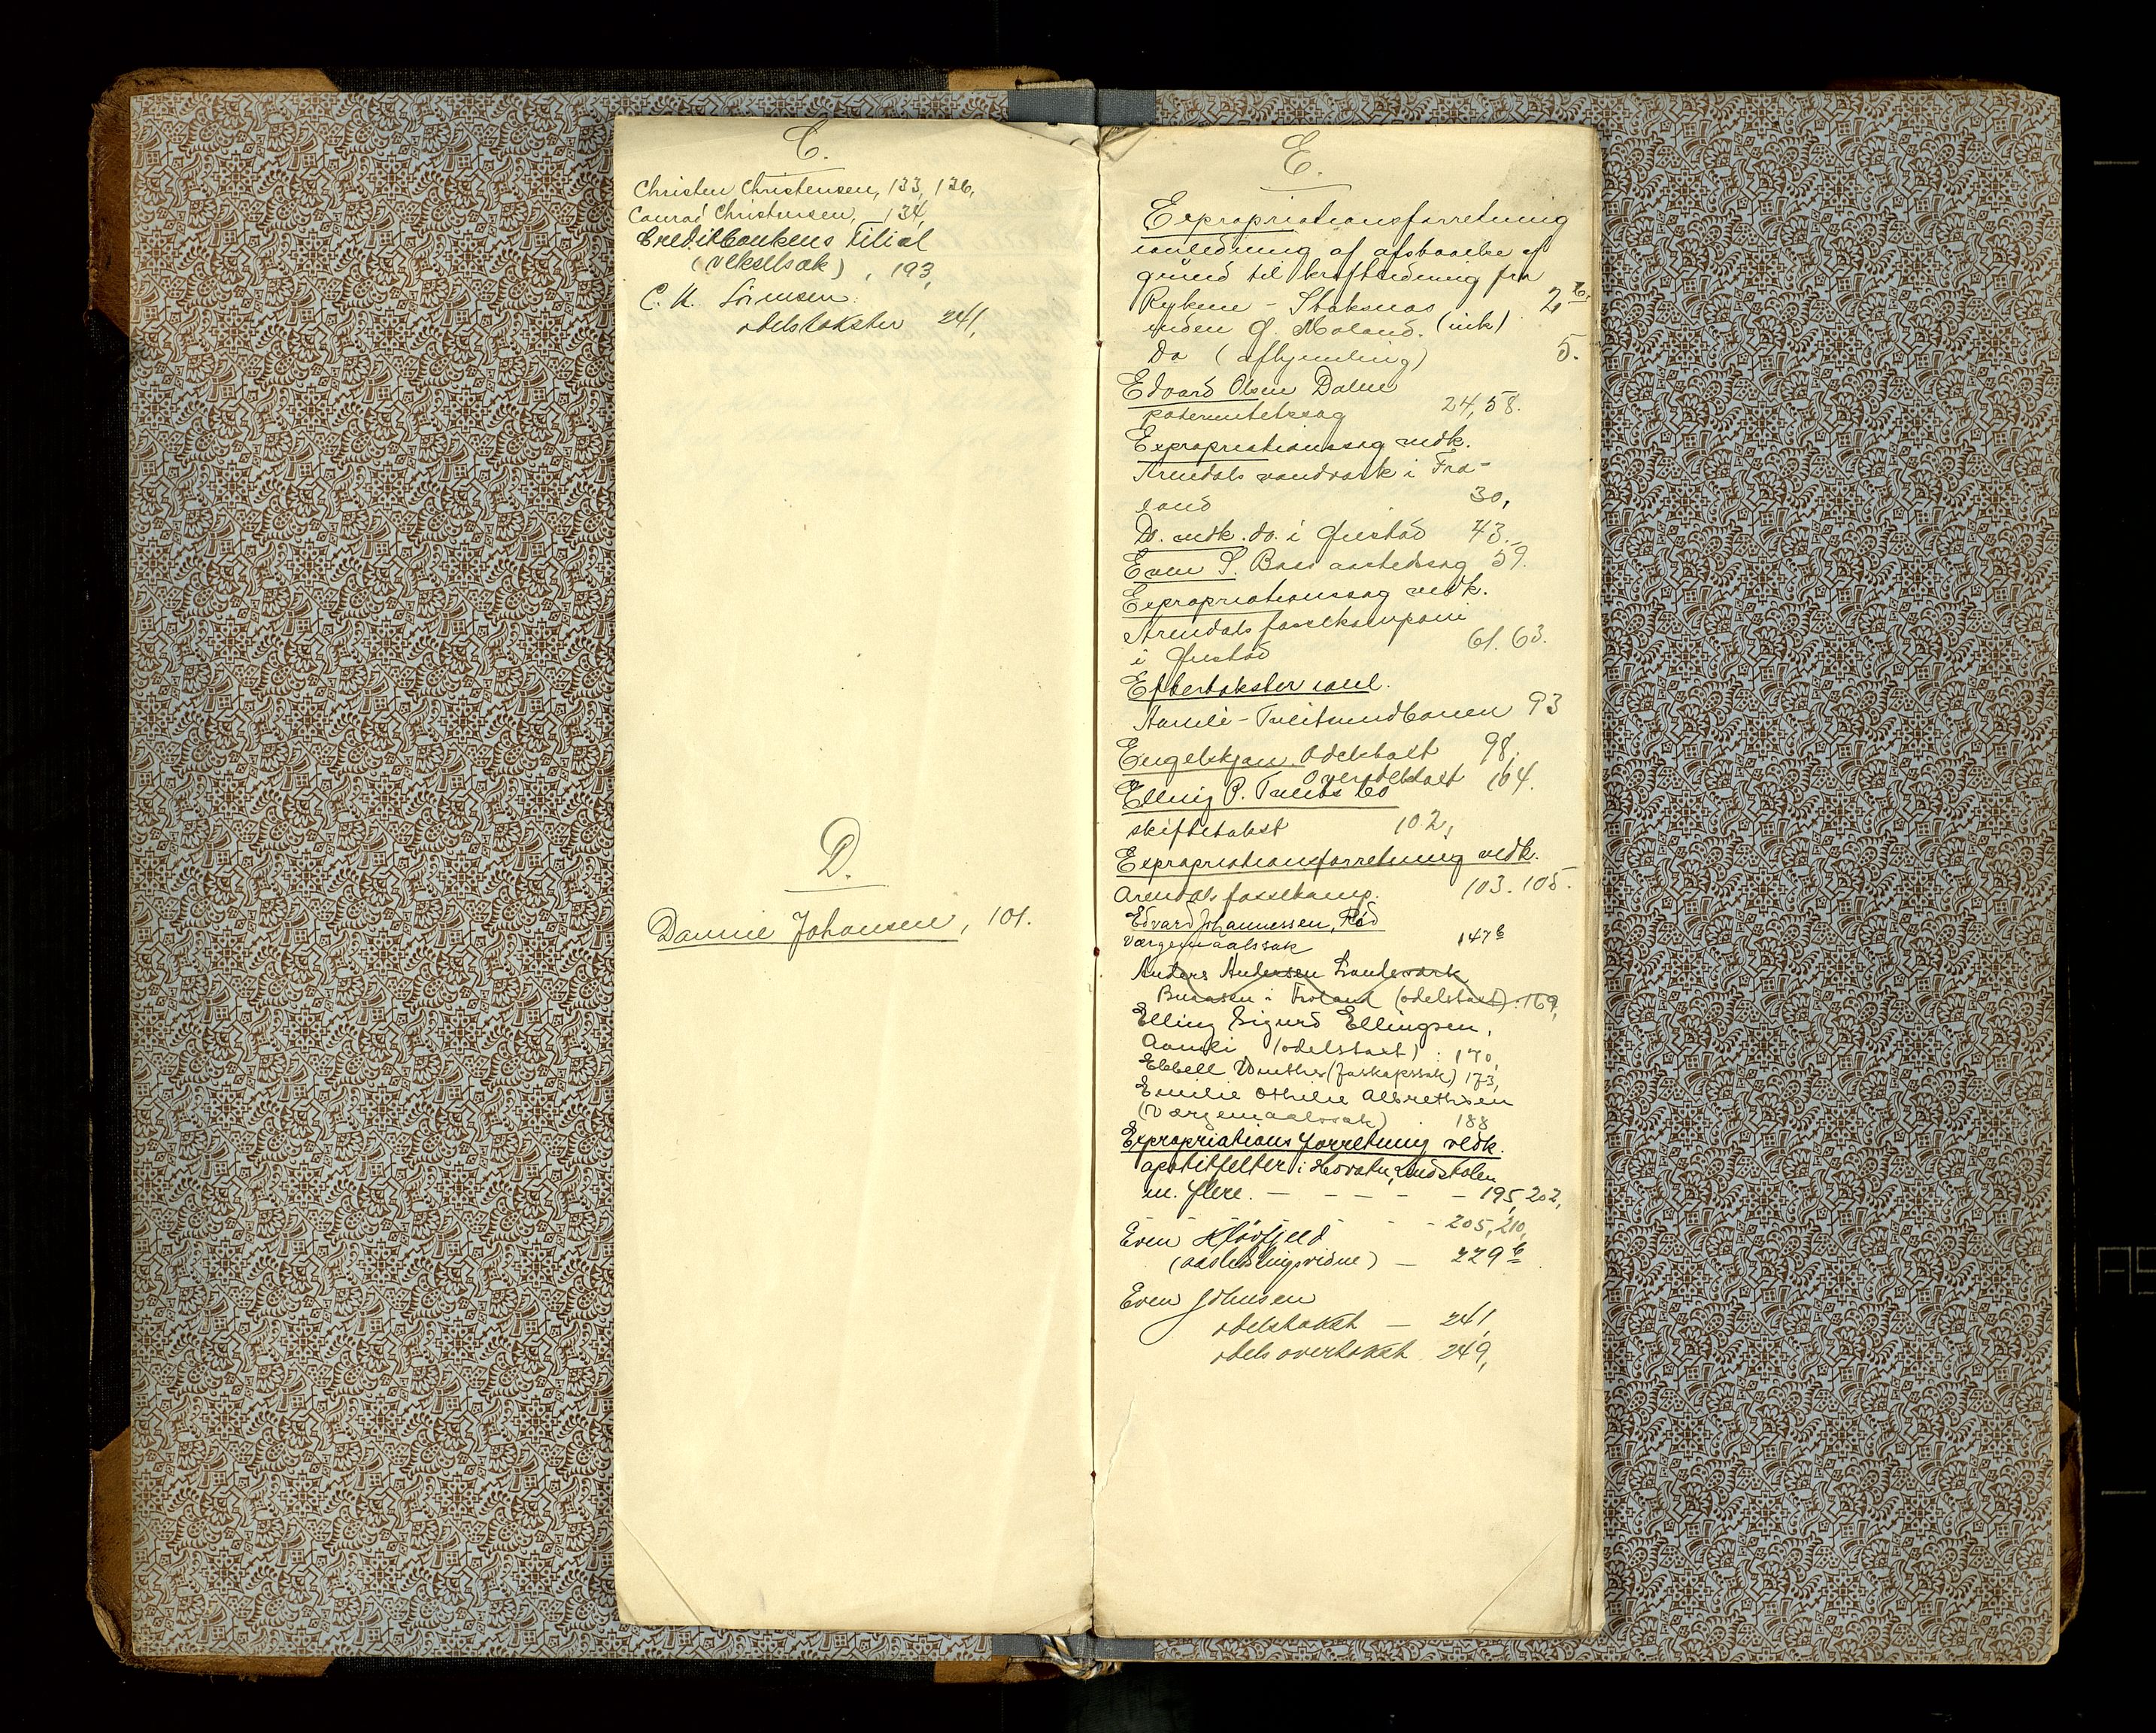 C.
Christen Christensen, 133, 136,
Conrad Christensen, 134,
Creditbankens Filial
(vekselsak), 193,
C. K. Sörensen:
odelstakster 241,
D.
Dannie Johansen, 101.
E.
Expropriationsforretning
ianledning af afstaaelse af
grund til kraftledning fra
Rykene - Staksnes 2 b.
inden Ø. Moland. (ink)
Do (afhjemling) 5.
Edvard Olsen Dalen
paternitetssag 24, 58.
Expropriationssag vedk.
Arendals vandværk i Fro-
land 30,
Do. vedk. do. i Øiestad 43.
Even S. Boss aastedssag 59.
Expropriationssag vedk.
Arendals fosselkompani
i Øiestad 61. 63.
Eftertakster vedl.
Aamli - Tveitsundbanen 93
Engelskjøn Odelstaxt 98,
Overodelstaxt 164.
Elling P. Tveits bo
skiftetakst 102,
Expropriationsforretning vedk.
Arendals fosselkomp. 103. 105.
Edvard Johannessen, Rød
Værgemaalssak 147 b
Anders Andersen Landsverk
Buaasen i Froland (odelstaxt) . 169,
Elling Sigurd Ellingsen,
Aamli (odelstaxt) : 170,
Ebbell Winther (farskapssak) 173,
Emilie Othilie Albrethsen
(Værgemaalssak) . 188
Expropriationsforretning vedk.
apatitfelter i Hovatn, Lindstølen
m. flere. - - - - - 195, 202,
- - - 205, 210,
Even Kløvfjeld
(aastedlingsvidne) - 229 b
Even Johnsen
odelstakst - 241,
odelsovertakst 249,